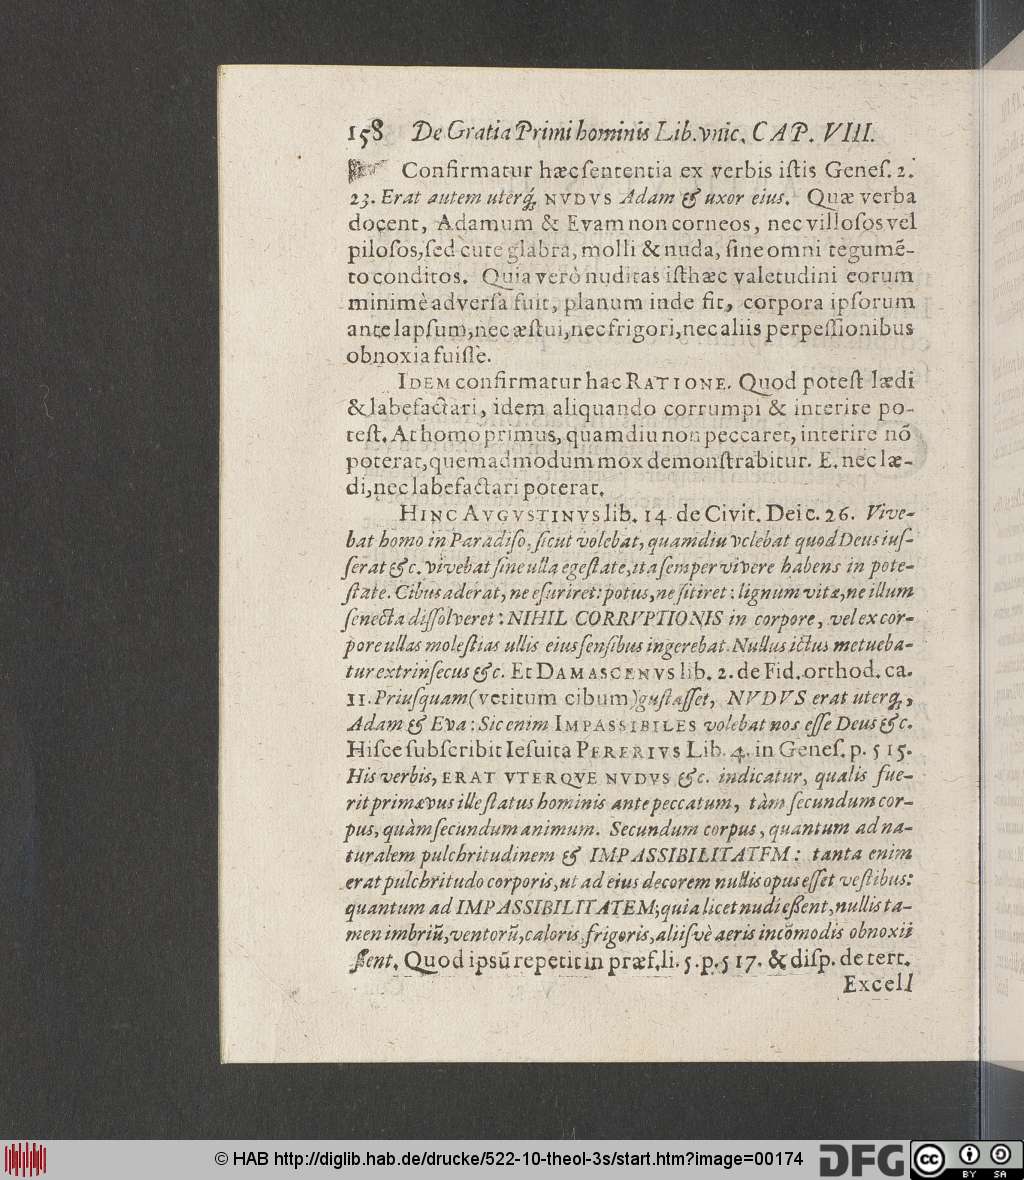 158 De Gratia Primi hominis Lib. vnic. CAP. VIII.
Confirmatur hæc ſententia ex verbis iſtis Geneſ. 2.
23. Erat autem uterq́; NVDVS Adam & uxor eius. Quæ verba
docent, Adamum & Evam non corneos, nec villoſos vel
piloſos, ſed cute glabra, molli & nuda, ſine omni tegumē-
to conditos. Quia verò nuditas iſthæc valetudini eorum
minimè adverſa fuit, planum inde fit, corpora ipſorum
ante lapſum, nec æſtui, nec frigori, nec aliis perpeſſionibus
obnoxia fuiſſe.
IDEM confirmatur hac RATIONE. Quod poteſt lædi
& labefactari, idem aliquando corrumpi & interire po-
teſt. At homo primus, quamdiu non peccaret, interire nō
poterat, quemadmodum mox demonſtrabitur. E. nec læ-
di, nec labefactari poterat.
HINC AVGVSTINVS lib. 14 de Civit. Dei c. 26. Vive-
bat homo in Paradiſo, ſicut volebat, quamdiu volebat quod Deus iuſ-
ſerat &c. vivebat ſine ulla egeſtate, ita ſemper vivere habens in pote-
ſtate. Cibus aderat, ne eſuriret: potus, ne ſitiret: lignum vitæ, ne illum
ſenecta diſſolveret: NIHIL CORRVPTIONIS in corpore, vel ex cor-
pore ullas moleſtias ullis eius ſenſibus ingerebat. Nullus ictus metueba-
tur extrinſecus &c. Et DAMASCENVS lib. 2. de Fid. orthod. ca.
11. Priuſquam (vetitum cibum) guſtaſſet, NVDVS erat uterq;,
Adam & Eva: Sic enim IMPASSIBILES volebat nos eſſe Deus &c.
Hiſce ſubſcribit Ieſuita PERERIVS Lib. 4. in Geneſ. p. 515.
His verbis, ERAT VTERQVE NVDVS &c. indicatur, qualis fue-
rit primævus ille ſtatus hominis ante peccatum, tàm ſecundum cor-
pus, quàm ſecundum animum. Secundum corpus, quantum ad na-
turalem pulchritudinem & IMPASSIBILITATEM: tanta enim
erat pulchritudo corporis, ut ad eius decorem nullis opus eſſet veſtibus:
quantum ad IMPASSIBILITATEM; quia licet nudi eßent, nullis ta-
men imbriū, ventorū, caloris, frigoris, aliiſvè aeris incōmodis obnoxii
ſſent. Quod ipsū repetit in præf. li. 5. p. 517. & diſp. de tert.
Excell
© HAB http://diglib.hab.de/drucke/522-10-theol-3s/start.htm?image=00174
DFG cc BY SA